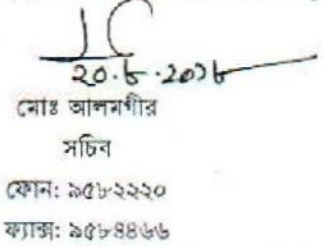 ২০.৮.২০১৮
মোঃ আলমগীর
সচিব
ফোন: ৯৫৮২২২০
ফ্যাক্স: ৯৫৮৪৪৬৬